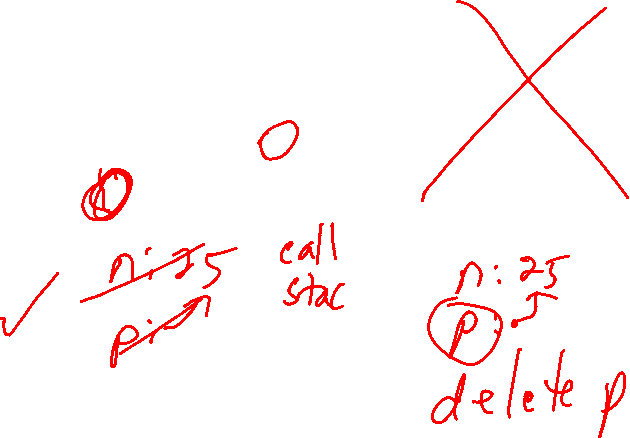 n: 25
p:
call
stac
n: 25
p:
delete p